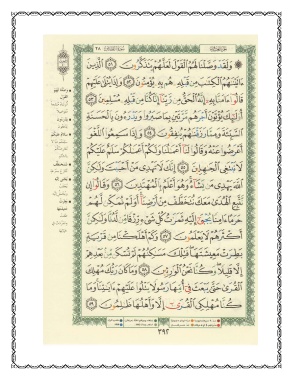 ۞ وَلَقَدْ وَصَّلْنَا لَهُمُ الْقَوْلَ لَعَلَّهُمْ يَتَذَكَّرُونَ ٥١ الَّذِينَ
ءَاتَيْنَاهُمُ الْكِتَابَ مِن قَبْلِهِ هُم بِهِ يُؤْمِنُونَ ٥٢ وَإِذَا يُتْلَى عَلَيْهِمْ
قَالُوا ءَامَنَّا بِهِ إِنَّهُ الْحَقُّ مِن رَّبِّنَا إِنَّا كُنَّا مِن قَبْلِهِ مُسْلِمِينَ ٥٣
أُولَٰئِكَ يُؤْتَوْنَ أَجْرَهُم مَّرَّتَيْنِ بِمَا صَبَرُوا وَيَدْرَءُونَ بِالْحَسَنَةِ
السَّيِّئَةَ وَمِمَّا رَزَقْنَاهُمْ يُنفِقُونَ ٥٤ وَإِذَا سَمِعُوا اللَّغْوَ
أَعْرَضُوا عَنْهُ وَقَالُوا لَنَا أَعْمَالُنَا وَلَكُمْ أَعْمَالُكُمْ سَلَامٌ عَلَيْكُمْ
لَا نَبْتَغِي الْجَاهِلِينَ ٥٥ إِنَّكَ لَا تَهْدِي مَنْ أَحْبَبْتَ وَلَٰكِنَّ
اللَّهَ يَهْدِي مَن يَشَاءُ وَهُوَ أَعْلَمُ بِالْمُهْتَدِينَ ٥٦ وَقَالُوا إِن
نَّتَّبِعِ الْهُدَىٰ مَعَكَ نُتَخَطَّفْ مِنْ أَرْضِنَا أَوَلَمْ نُمَكِّن لَّهُمْ
حَرَمًا ءَامِنًا يُجْبَىٰ إِلَيْهِ ثَمَرَاتُ كُلِّ شَيْءٍ رِّزْقًا مِّن لَّدُنَّا وَلَٰكِنَّ
أَكْثَرَهُمْ لَا يَعْلَمُونَ ٥٧ وَكَمْ أَهْلَكْنَا مِن قَرْيَةٍ
بَطِرَتْ مَعِيشَتَهَا فَتِلْكَ مَسَاكِنُهُمْ لَمْ تُسْكَن مِّن بَعْدِهِمْ
إِلَّا قَلِيلًا وَكُنَّا نَحْنُ الْوَارِثِينَ ٥٨ وَمَا كَانَ رَبُّكَ مُهْلِكَ
الْقُرَىٰ حَتَّىٰ يَبْعَثَ فِي أُمِّهَا رَسُولًا يَتْلُو عَلَيْهِمْ ءَايَاتِنَا وَمَا
كُنَّا مُهْلِكِي الْقُرَىٰ إِلَّا وَأَهْلُهَا ظَالِمُونَ ٥٩
٣٩٢